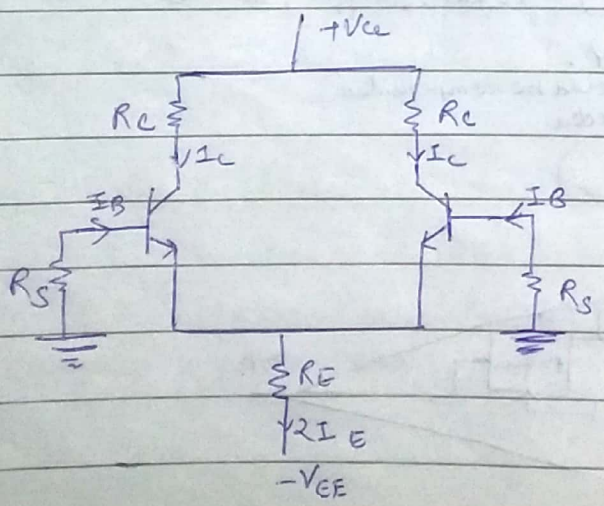 +Vcc
RC
RC
IC
IC
IB
IB
RS
RS
RE
2IE
-VEE